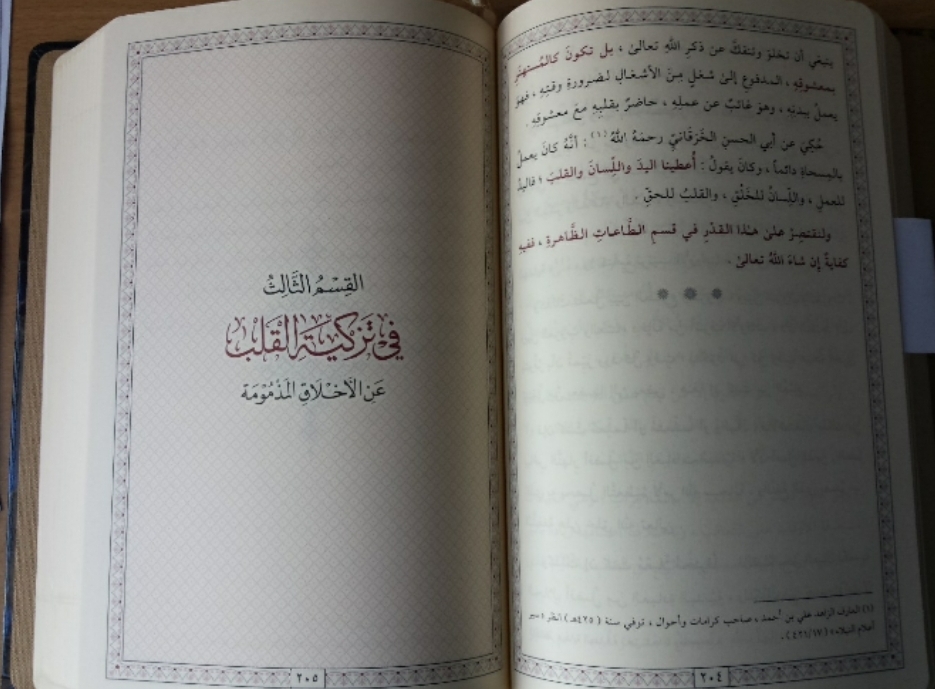 ينبغي أن تخلوَ وتنفكَّ عن ذكرِ اللهِ تعالىٰ ، بل تكونَ كالمُستهتَرِ
بمعشوقِهِ ، المدفوعِ إلىٰ شغلٍ مِنَ الأشغالِ لضرورةِ وقتِهِ ، فهوَ
يعملُ ببدنِهِ ، وهوَ غائبٌ عن عملِهِ ، حاضرٌ بقلبِهِ معَ معشوقِهِ .
حُكِيَ عن أبي الحسنِ الخَرَقانيِّ رحمَهُ اللهُ (١) : أنَّهُ كانَ يعملُ
بالمِسحاةِ دائماً ، وكانَ يقولُ : أُعطينا اليدَ واللِّسانَ والقلبَ ؛ فاليدُ
للعملِ ، واللِّسانُ للخَلْقِ ، والقلبُ للحقِّ .
ولنقتصِرْ علىٰ هـٰذا القدْرِ في قسمِ الطَّاعاتِ الظَّاهرةِ ، ففيهِ
كفايةٌ إن شاءَ اللهُ تعالىٰ .
(١) العارف الزاهد علي بن أحمد ، صاحب كرامات وأحوال ، توفي سنة ( ٤٢٥هـ ) انظر « سير
أعلام النبلاء » ( ٤٢١/١٧ ) .
٢٠٤
القِسْمُ الثَّالِثُ
فِي تَزْكِيَةِ القَلْبِ
عَنِ الأَخْلَاقِ المَذْمُومَة
٢٠٥